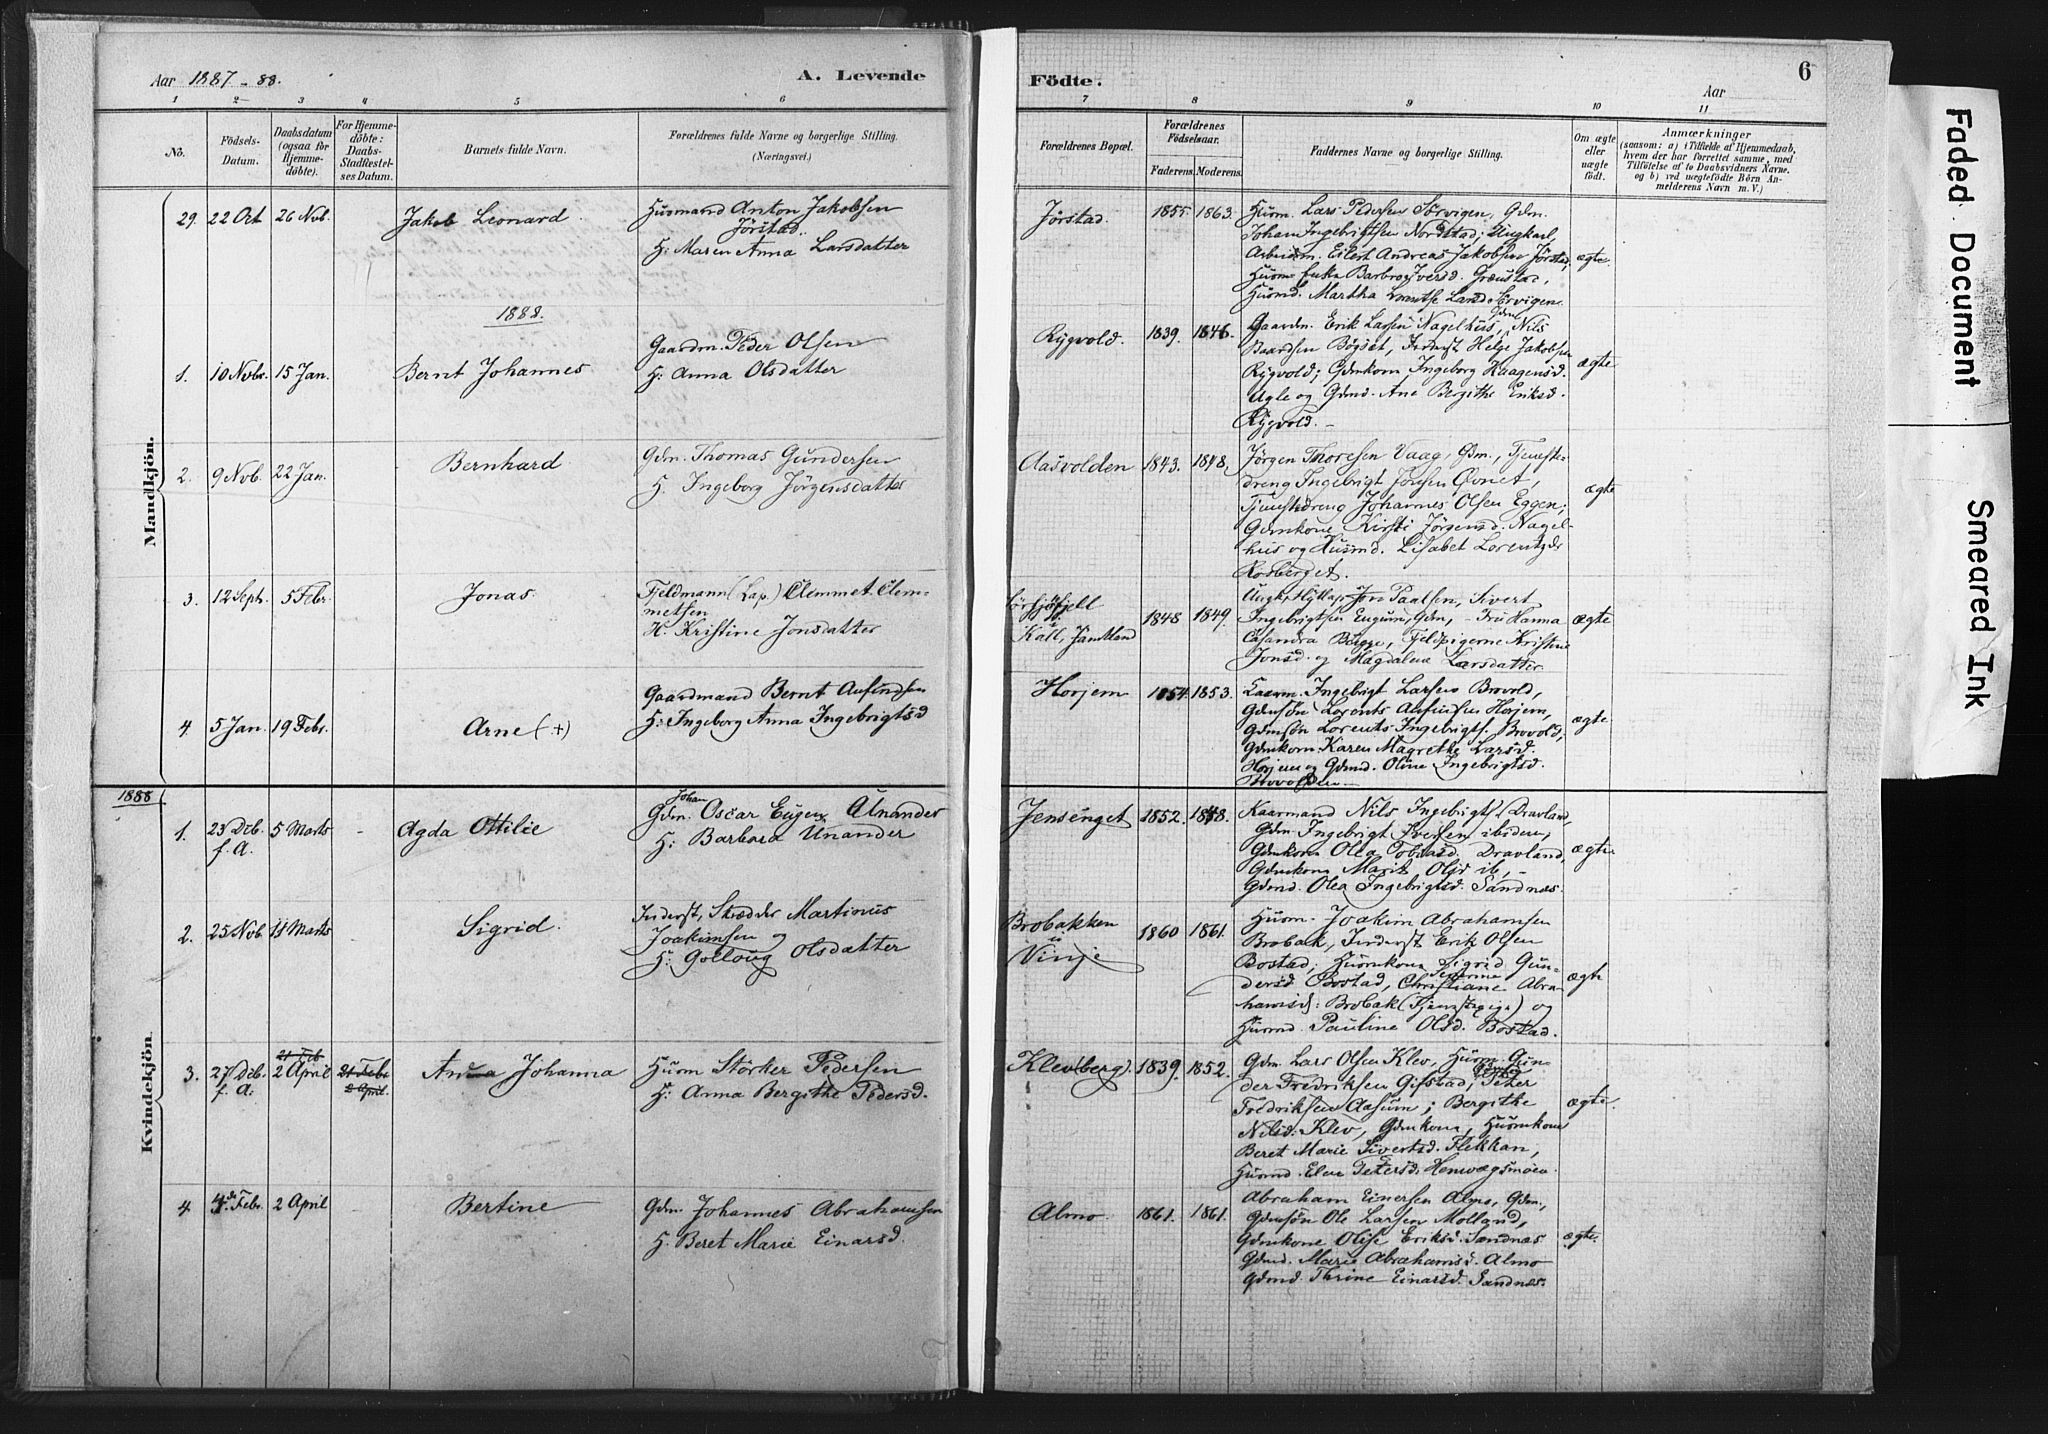 Aar 1887-88.
A. Levende
Födte.
Aar
6
1 2 3 4 5 6 7 8 9 10 11
No.
Födsels-
Datum.
Daabsdatum
(ogsaa for
Hjemme-
döbte).
For Hjemme-
döbte:
Daabs-
Stadfestel-
ses Datum.
Barnets fulde Navn.
Forældrenes fulde Navne og borgerlige Stilling.
(Næringsvei.)
Forældrenes Bopæl.
Forældrenes
Födselsaar.
Faderens. Moderens.
Faddernes Navne og borgerlige Stilling.
Om ægte
eller
uægte
födt.
Anmærkninger
(saasom: a) i Tilfælde af Hjemmedaab,
hvem der har forrettet samme, med
Tilföielse af to Daabsvidners Navne.
og b) ved uægtefödte Börn An-
melderens Navn m. V.)
Mandkjön.
29. 22 Oct 26 Nvb. Jakob Leonard.
Husmand Anton Jakobsen
Jörstad.
H: Maren Anna Larsdatter
Jörstad. 1855. 1863.
Husm. Lars Pedersen Sörvigen, Gdm.
Johan Ingebrigtsen Nordstad; Ungkarl,
Arbeidsm. Eilert Andreas Jakobsen Jörstad,
Husm
Husmd. Martha Sörvigen.
ægte.
1888.
1. 10 Novbr. 15 Jan. Bernt Johannes
Gaardm. Peder Olsen
H: Anna Olsdatter
Rygvold. 1839. 1846.
Gaardm. Erik Larsen Nagelhus, Gdm Nils
Baardsen Bögset, Inderst Helge Jakobsen
Rygvold; Gdmkona Ingeborg Haagensd.
Ugle og Gdmd. Ane Bergithe Eriksd.
Rygvold. -
ægte
2. 9 Nvb. 22 Jan. Bernhard
Gdm. Thomas Gundersen
H. Ingeborg Jörgensdatter
Aasvolden 1843. 1848.
Jörgen Thoresen Vaag, Gdm., Tjeneste-
dreng Ingebrigt Jonsen Övnet,
Tjenstedreng Johannes Olsen Eggen;
Gdmkone Kirsti Jörgensd. Nagel-
hus og Husmd. Lisabet Lorentzdr
Rodberget.
ægte
3. 12 Septr. 5 Febr. Jonas.
Fjeldmann (Lap.) Clemmet Clem-
metsen
H. Kristine Jonsdatter
i
Kall, Jämtland 1848 1849.
Jon Paalsen, Sivert
Ingebrigtsen Gdm, - Fru Hanna
Casandra Bugge, Fjeldpigerne Kristine
Jonsd. og Magdalena Larsdatter.
ægte
4. 5 Jan. 19 Febr. Arne (+)
Gaardmand Bernt Anfindsen
H: Ingeborg Anna Ingebrigtsd
Horjem 1854. 1853.
Kaarm. Ingebrigt Larsen Brovold,
Gdmsön Lorents Anfinsen Horjem,
Gdmsön Lorents Ingebrigts. Brovold,
Gdmkon. Karen Magrethe Larsd.
Horjem og Gdmd. Oline Ingebrigtsd.
Brovolden
ægte
Kvindekjön.
1888
1. 23 Dcb. 5 Marts - Agda Ottilie
f. A.
Johan
Gdm. Oscar Eugen Unander
H: Barbara Unander
Jensenget 1852. 1848.
Kaarmand Nils Ingebrigts. Dravland,
Gdm. Ingebrigt Iversen ibidem;
Gdmkona Olea Tobiasd. Dravland,
Gdmkona Marit Olsd ib, -
Gdmd. Olea Ingebrigtsd. Sandnæs.
ægte
2. 25 Nvb. 11 Marts - Sigrid.
Inderst, Skrædder Martinus
Joakimsen og
H: Golloug Olsdatter
Brobakken
i
Vinje 1860 1861.
Husm. Joakim Abrahamsen
Brobak, Inderst Erik Olsen
Bostad; Husmkona Sigrid Gun-
dersd Bostad, Christiane Abra-
hamsd: Brobak (Tjenstepige) og
Husmd. Pauline Olsd. Bostad.
ægte
21 Feb
3. 27 Dcb. 2 April 21 Febr Anna Johanna
f. A. 2 April.
Husm Störker Pedersen
H: Anna Bergithe Pedersd.
Klevberg. 1839. 1852.
Gdm. Lars Olsen Klev, Husm. Gun-
der Fredriksen Gifstad, Peter
Fredriksen Aasum; Bergithe
Nilsd. Klev, Gdmkona, Husmkona
Beret Marie Sivertsd. Flekkan,
Husmd. Elen Petersd. Henvægsmoen.
ægte.
4 4de Febr. 2 April - Bertine
Gdm. Johannes Abrahamsen
H. Beret Marie Einarsd.
Almo. 1861. 1861.
Abraham Einersen Almo, Gdm,
Gdmsön Ole Larsen Molland,
Gdmkone Olise Eriksd. Sandnæs
Gdmd. Marie Abrahamsd. Almo
Gdmd. Thrine Einarsd. Sandnæs.
ægte.
Faded Document
Smeared Ink